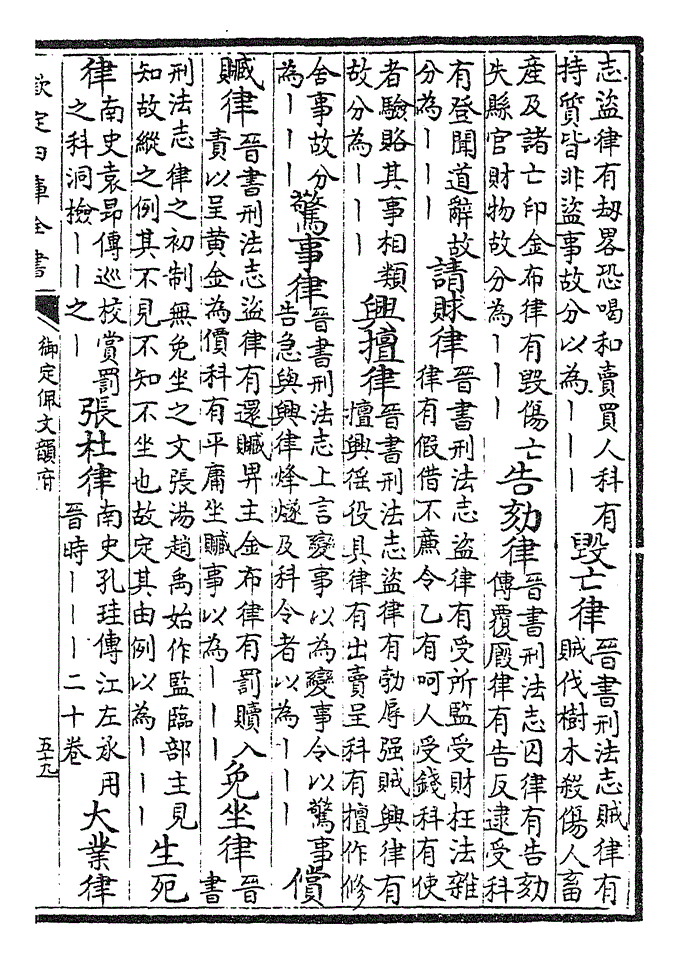 志盜律有刼畧恐喝和賣買人科有
持質皆非盜事故分以為丨丨丨
毀亡律
晉書刑法志賊律有
賊伐樹木殺傷人畜
產及諸亡印金布律有毀傷亡
失縣官財物故分為丨丨丨
告劾律
晉書刑法志囚律有告劾
傳覆廐律有告反逮受科
有登聞道辭故
分為丨丨丨
請賕律
晉書刑法志盜律有受所監受財枉法雜
律有假借不亷令乙有呵人受錢科有使
者驗賂其事相類
故分為丨丨丨
興擅律
晉書刑法志盜律有勃辱强賊興律有
擅興徭役具律有出賣呈科有擅作修
舍事故分
為丨丨丨
驚事律
晉書刑法志上言變事以為變事令以驚事
告急與興律烽燧及科令者以為丨丨丨
償
贓律
晉書刑法志盜律有還贓畀主金布律有罰贖入
責以呈黄金為價科有平庸坐贓事以為丨丨丨
免坐律
晉
書
刑法志律之初制無免坐之文張湯趙禹始作監臨部主見
知故縱之例其不見不知不坐也故定其由例以為丨丨丨
生死
律
南史袁昂傳巡校賞罰
之科洞撿丨丨之丨
張杜律
南史孔珪傳江左承用
晉時丨丨丨二十卷
大業律
欽定四庫全書
御定佩文韻府
五十九